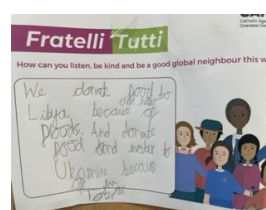 Fratelli Tutti
Catholic Age
Overseas De
How can you listen, be kind and be a good global neighbour this w
We donate food to
Libya because of
floods. And donate
food and water to
Ukraine because
of